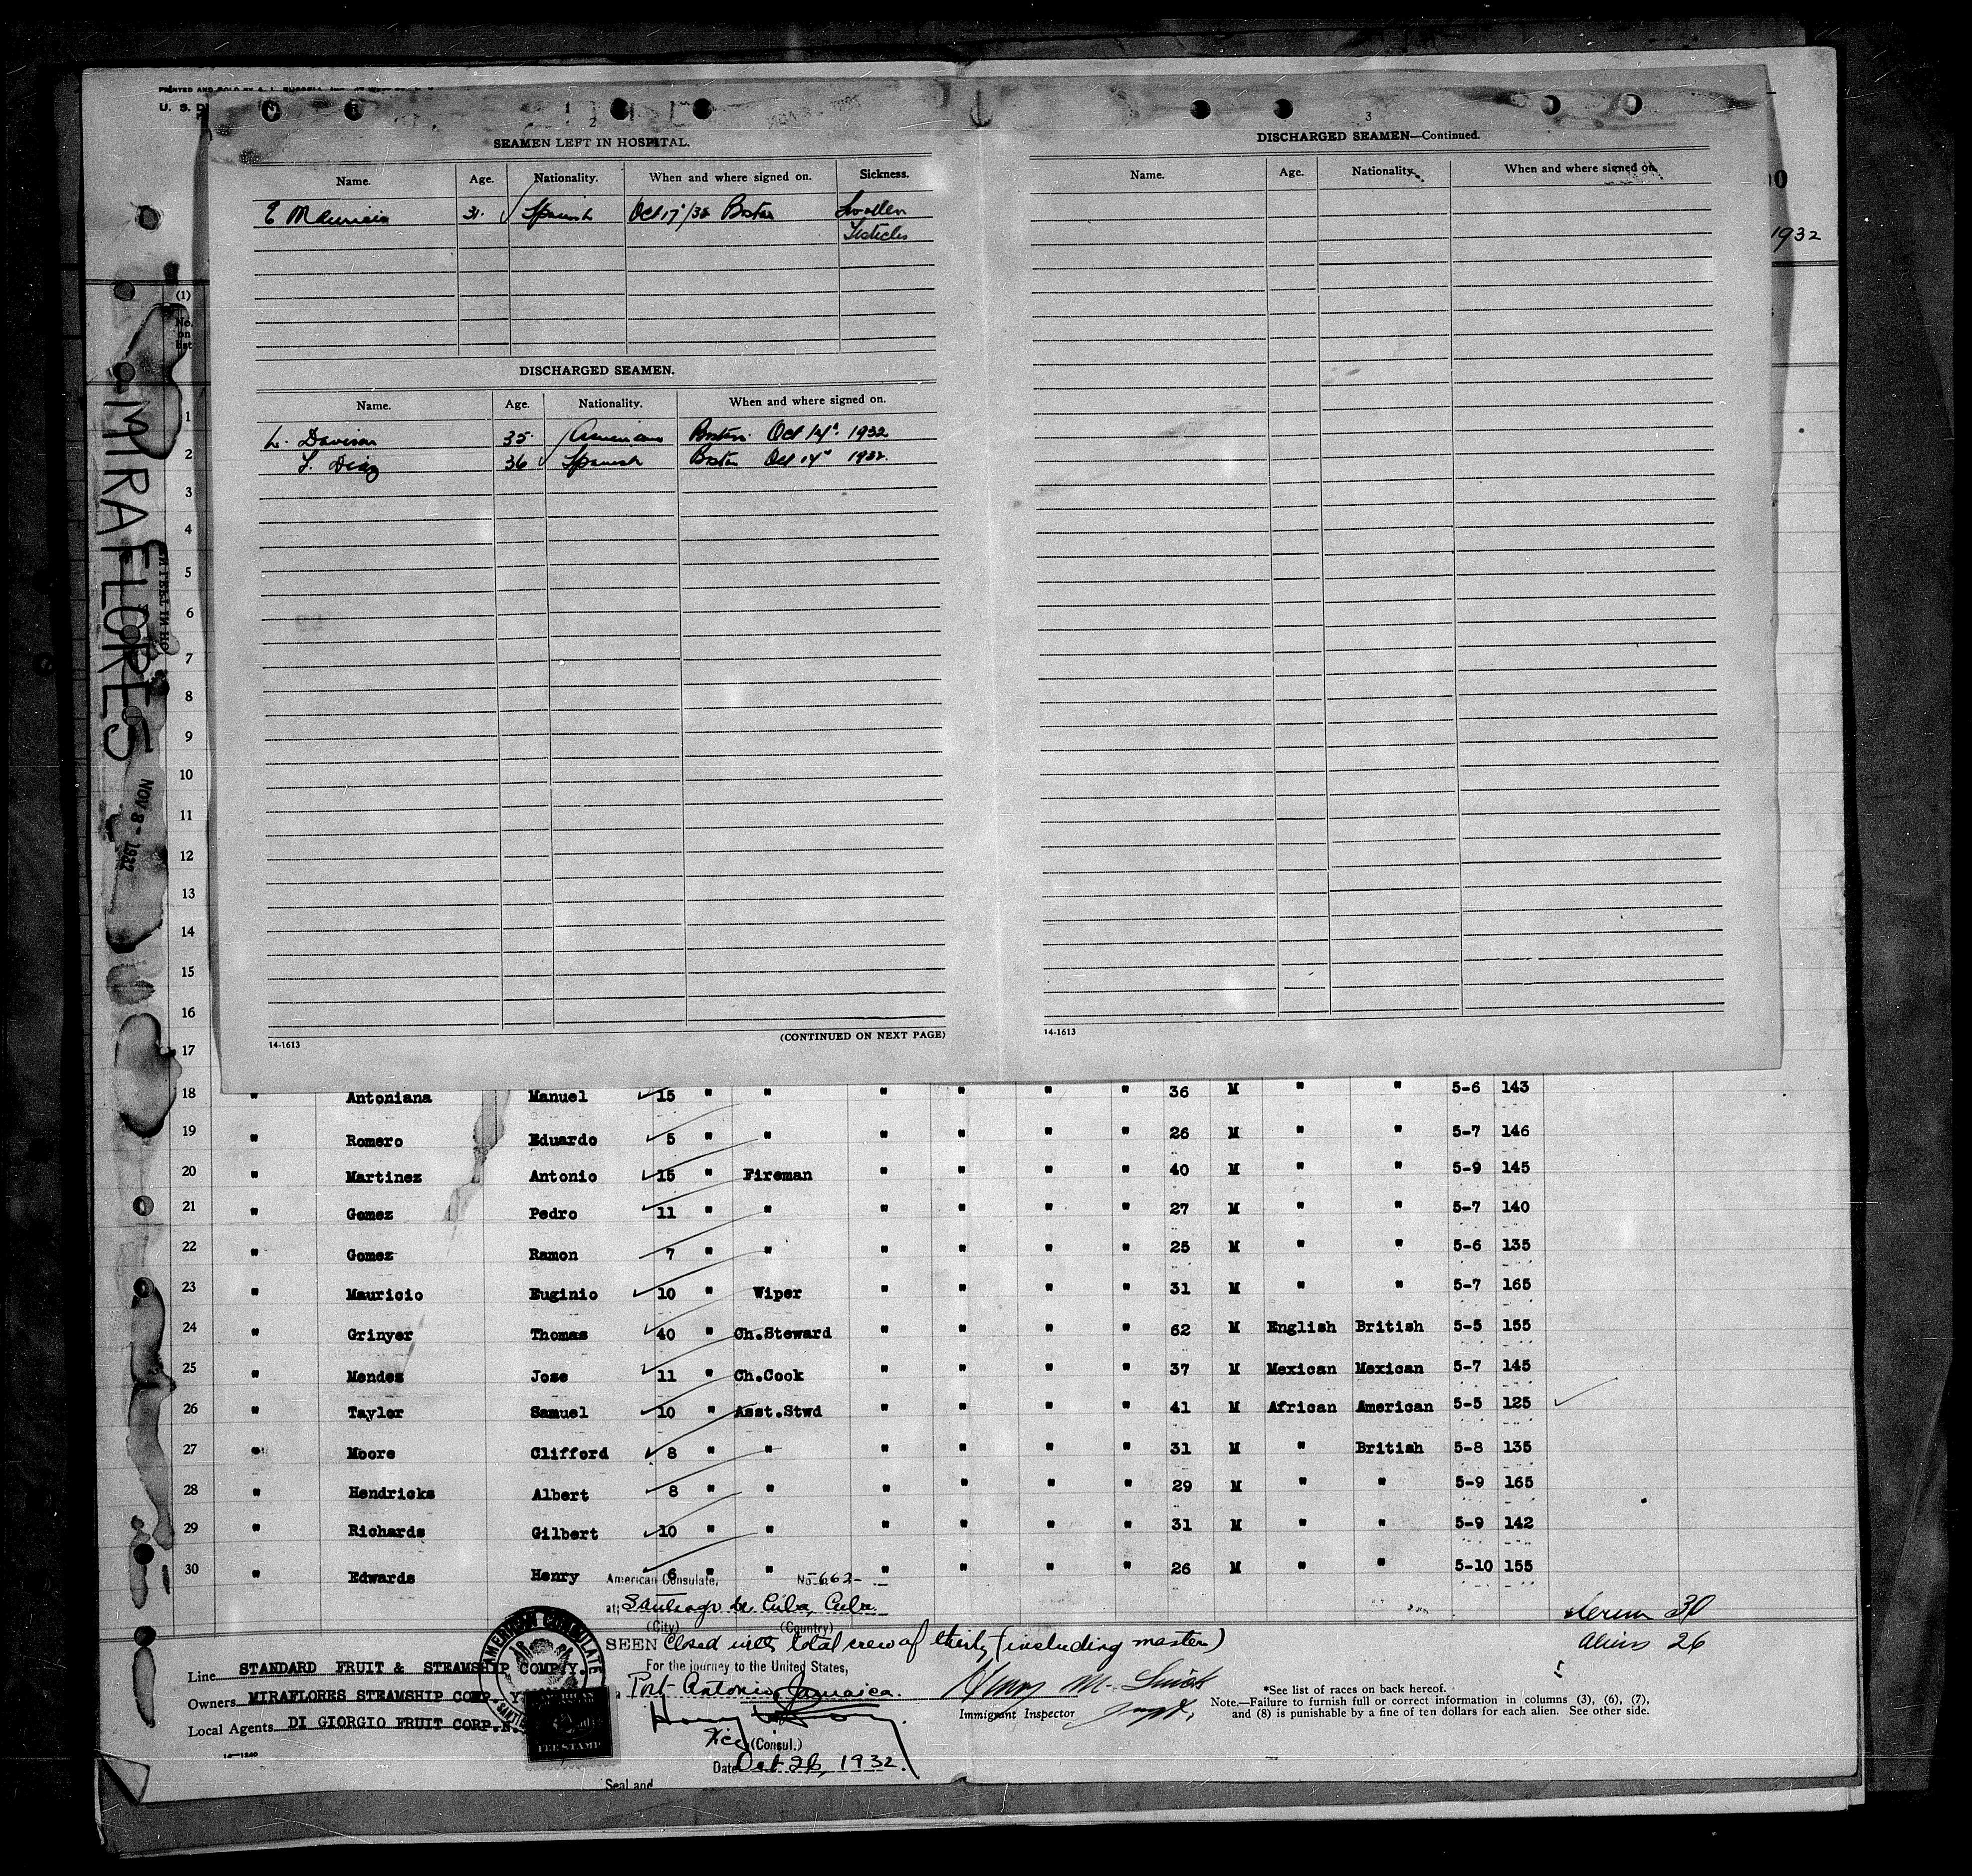 PRINTED AND SOLD BY
U. S. D
2
SEAMEN LEFT IN HOSPITAL.
Name. Age. Nationality. When and where signed on. Sickness.
E Mauricio 31. Spanish Oct 17/32 Boston Swollen
Testicles
DISCHARGED SEAMEN.
Name. Age. Nationality. When and where signed on.
L. Davison 35 American Boston. Oct 14" 1932
S. Diaz 36 Spanish Boston Oct 14" 1932.
(CONTINUED ON NEXT PAGE)
14-1613
3
DISCHARGED SEAMEN—Continued.
Name. Age. Nationality. When and where signed on.
14-1613
1932
MIRAFLORES
NOV 8 - 1932
(1)
No.
on
list
1
2
3
4
5
6
7
8
9
10
11
12
13
14
15
16
17
18 " Antoniana Manuel 15 " " " " " " 36 M " " 5-6 143
19 " Romero Eduardo 5 " " " " " " 26 M " " 5-7 146
20 " Martinez Antonio 15 " Fireman " " " " 40 M " " 5-9 145
21 " Gomez Pedro 11 " " " " " " 27 M " " 5-7 140
22 " Gomez Ramon 7 " " " " " " 25 M " " 5-6 135
23 " Mauricio Euginio 10 " Wiper " " " " 31 M " " 5-7 165
24 " Grinyer Thomas 40 " Ch.Steward " " " " 62 M English British 5-5 155
25 " Mendez Jose 11 " Ch.Cook " " " " 37 M Mexican Mexican 5-7 145
26 " Taylor Samuel 10 " Asst.Stwd " " " " 41 M African American 5-5 125
27 " Moore Clifford 8 " " " " " " 31 M " British 5-8 135
28 " Hendricks Albert 8 " " " " " " 29 M " " 5-9 165
29 " Richards Gilbert 10 " " " " " " 31 M " " 5-9 142
30 " Edwards Henry 6 " " " " " " 26 M " " 5-10 155
American Consulate, No. 662
at Santiago de Cuba, Cuba
(City) (Country)
30
Aliens 26
SEEN Closed with total crew of thirty (including master)
For the journey to the United States,
Port Antonio, Jamaica.
Vice (Consul.)
Date Oct 26, 1932.
Seal and
AMERICAN CONSULATE
FEE STAMP
Line STANDARD FRUIT & STEAMSHIP COMP Y.
Owners MIRAFLORES STEAMSHIP COMP. Y
Local Agents DI GIORGIO FRUIT CORP.N.
14—1240
Henry M.
Immigrant Inspector
*See list of races on back hereof.
Note.—Failure to furnish full or correct information in columns (3), (6), (7),
and (8) is punishable by a fine of ten dollars for each alien. See other side.